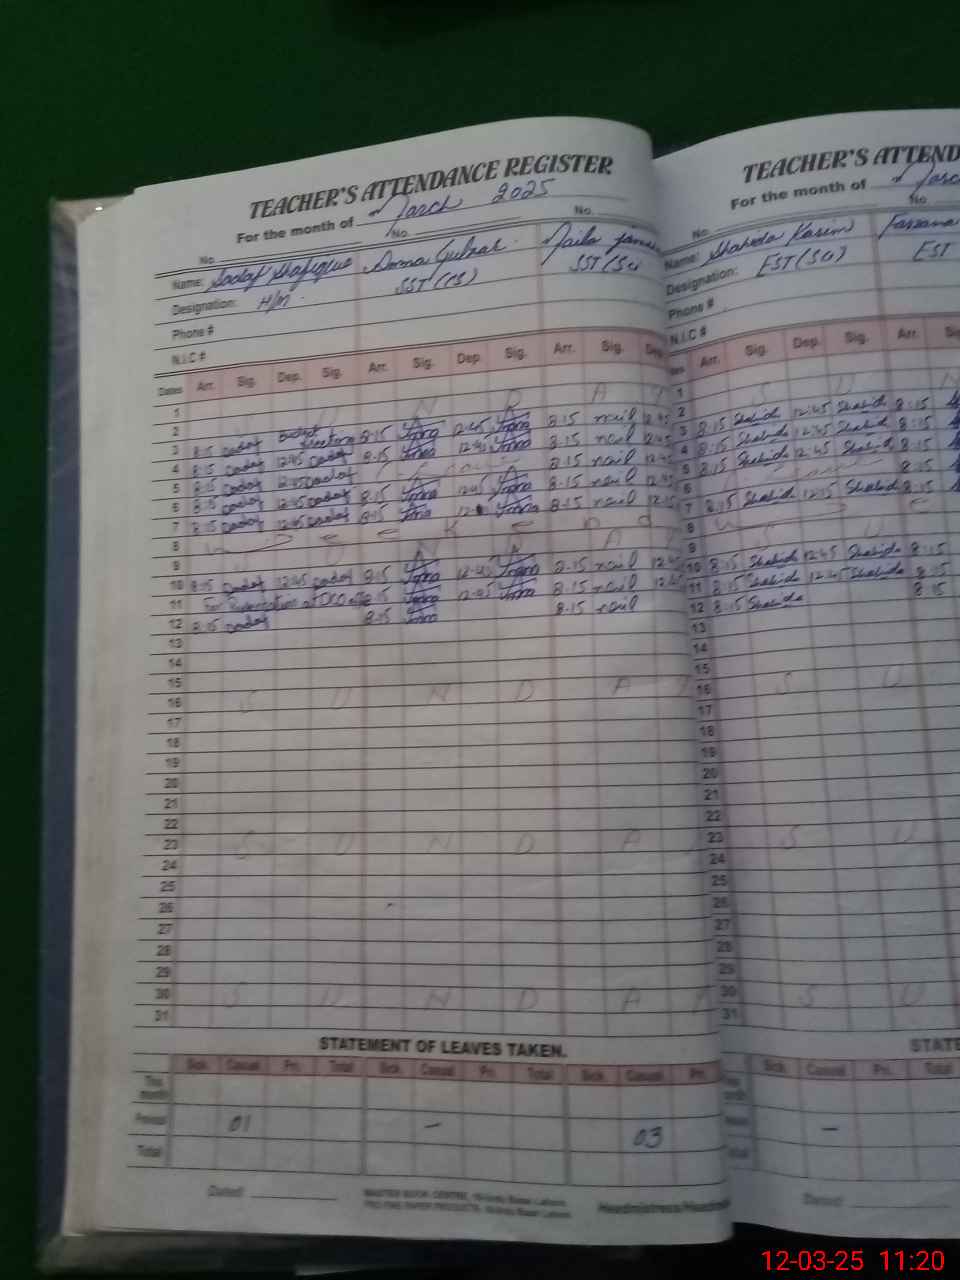 TEACHER'S ATTENDANCE REGISTER
For the month of March 2025
No. No. No.
Name: Sadaf Shafique Amna Gulzar Naila
Designation: H/M SST (CS) SST (Sci
Phone #
N.I.C #
Dates Arr. Sig. Dep. Sig. Arr. Sig. Dep. Sig. Arr. Sig. Dep.
1
2 U N D A Y
3 8:15 Sadaf 8:15 Amna 12:45 Amna 8:15 nail 12:45
4 8:15 Sadaf 12:45 Sadaf 8:15 Amna 12:45 Amna 8:15 nail 12:45
5 8:15 Sadaf 12:45 Sadaf 8:15 nail 12:45
6 8:15 Sadaf 12:45 Sadaf 8:15 Amna 12:45 Amna 8:15 nail 12:45
7 8:15 Sadaf 12:45 Sadaf 8:15 Amna Amna 8:15 nail 12:15
8 W e e k e n d
9 U N D A
10 8:15 Sadaf 12:45 Sadaf 8:15 Amna 12:45 Amna 8:15 nail 12:45
11 8:15 Amna 12:45 Amna 8:15 nail 12:45
12 8:15 Sadaf 8:15 Amna 8:15 nail
13
14
15
16 S U N D A Y
17
18
19
20
21
22
23 S U N D A Y
24
25
26
27
28
29
30 S U N D A Y
31
STATEMENT OF LEAVES TAKEN.
Sick. Casual Pri. Total Sick. Casual Pri. Total Sick. Casual Pri.
This month
Previous 01 – 03
Total
Dated
MASTER BOOK CENTRE,
Headmistress/Headm
TEACHER'S ATTEND
For the month of Marc
No. No.
Name: Shahida Kasim Farzana
Designation: EST (Sci) EST
Phone #
N.I.C #
Arr. Sig. Dep. Sig. Arr.
1
2 S U N
3 8:15 Shahida 12:45 Shahida 8:15
4 8:15 Shahida 12:45 Shahida 8:15
5 8:15 Shahida 12:45 Shahida 8:15
6 8:15
7 8:15 Shahida 12:15 Shahida 8:15
8 W e
9 S U
10 8:15 Shahida 12:45 Shahida 8:15
11 8:15 Shahida 12:45 Shahida 8:15
12 8:15 Shahida 8:15
13
14
15
16 S U
17
18
19
20
21
22
23 S U
24
25
26
27
28
29
30 S U
31
STATE
Sick. Casual Pri. Total
–
Dated
12-03-25 11:20